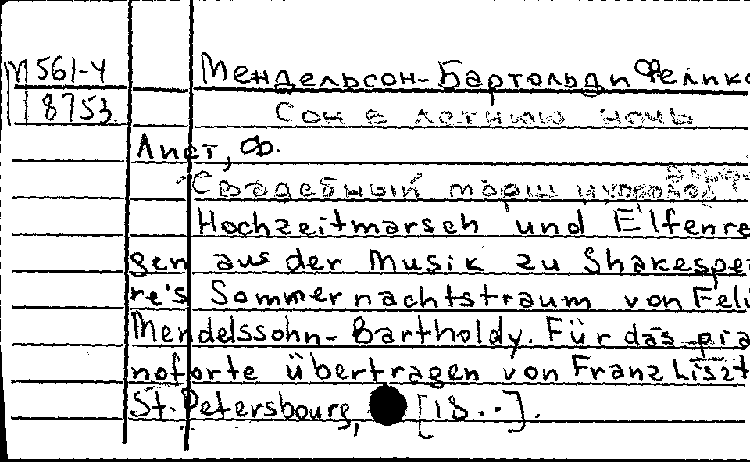 М 561-4 Мендельсон-Бартольди Феликс
8753 Сон в летнюю ночь
Лист, Ф.
Свадебный марш и
Hochzeitmarsch und Elfenre
gen aus der Musik zu Shakespe
re's Sommernachtstraum von Feli
Mendelssohn-Bartholdy. Für das pia
noforte übertragen von Franz Liszt
St.-Petersbourg, [18..].